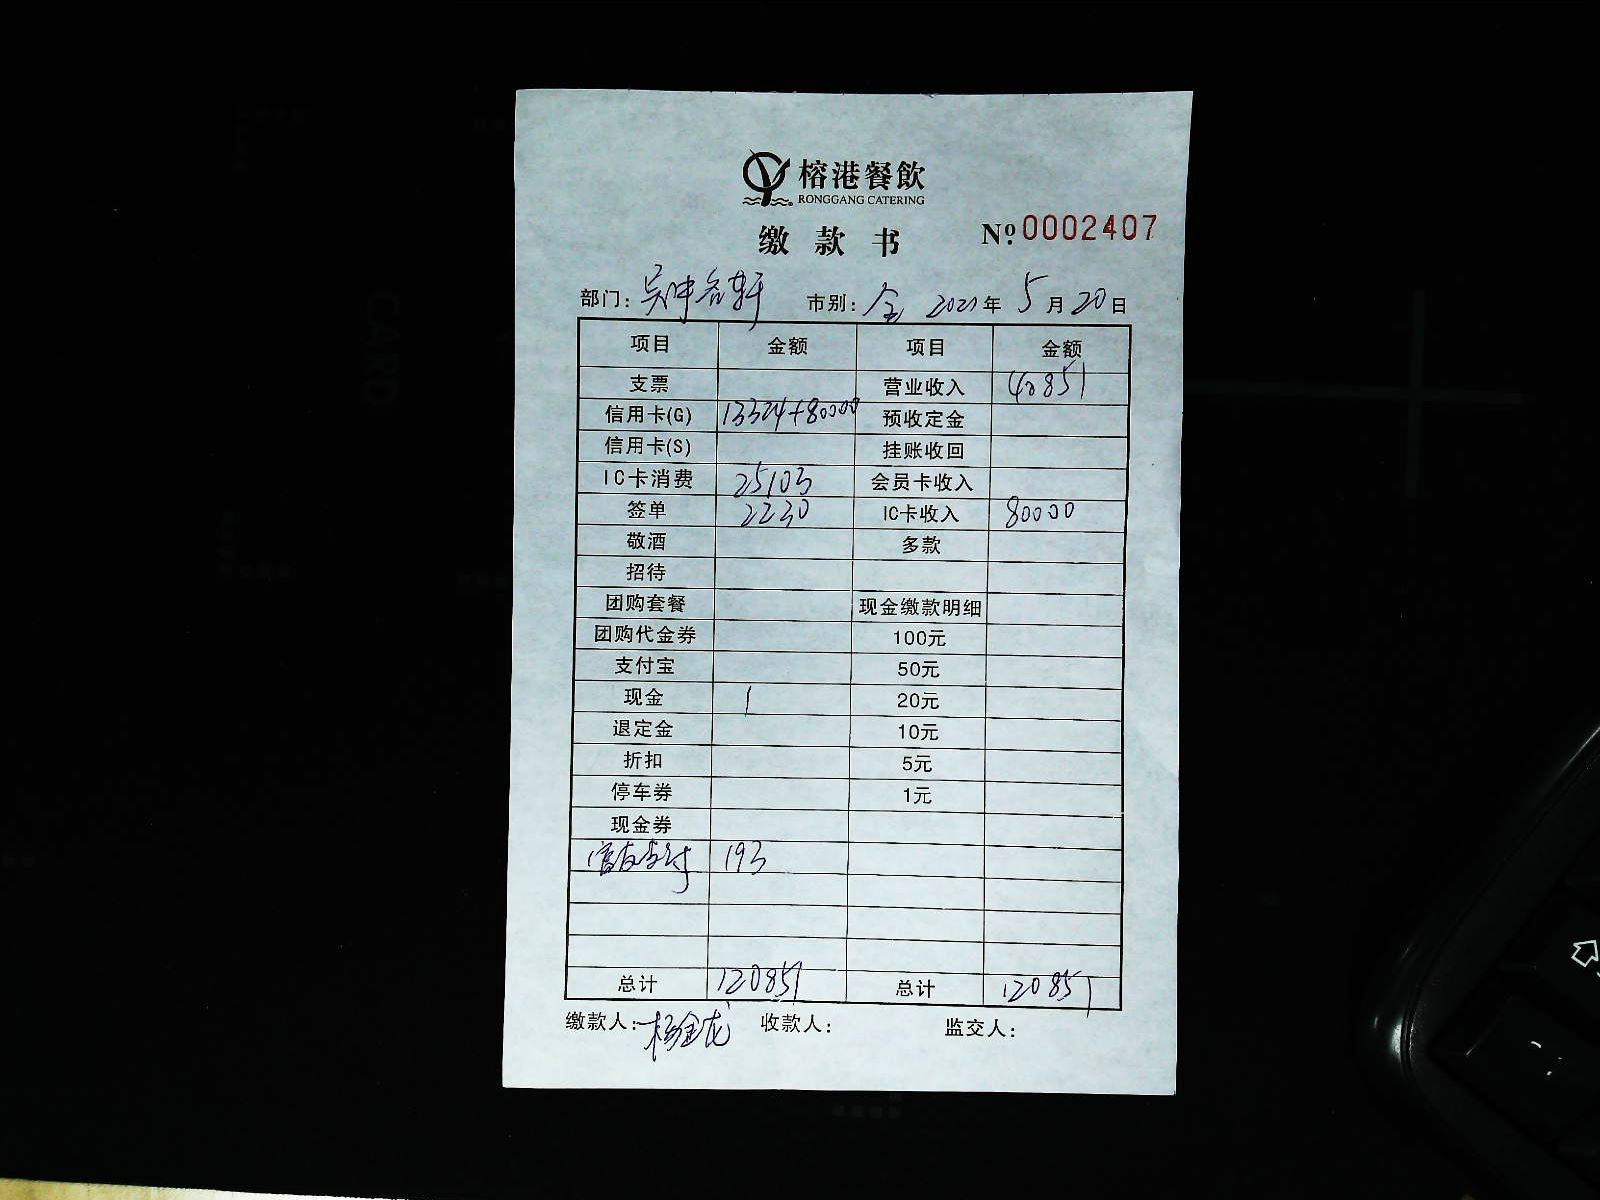 榕港餐飲
RONGGANG CATERING
缴款书 №:0002407
部门: 市别:全 2021年 5月20日
项目 金额 项目 金额
支票 营业收入 40851
信用卡(G) 13324+80000 预收定金
信用卡(S) 挂账收回
IC卡消费 25103 会员卡收入
签单 2230 IC卡收入 80000
敬酒 多款
招待
团购套餐 现金缴款明细
团购代金券 100元
支付宝 50元
现金 1 20元
退定金 10元
折扣 5元
停车券 1元
现金券
支付 193
总计 120851 总计 120851
缴款人:杨金龙 收款人: 监交人:
CARD